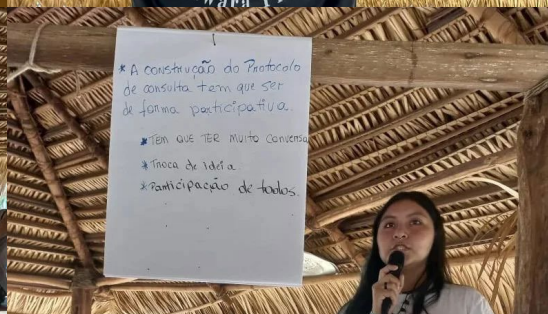 * A construção do Protocolo
de consulta tem que ser
de forma participativa.
* TEM QUE TER MUITO CONVERSA
* Troca de ideia.
* Participação de todos.